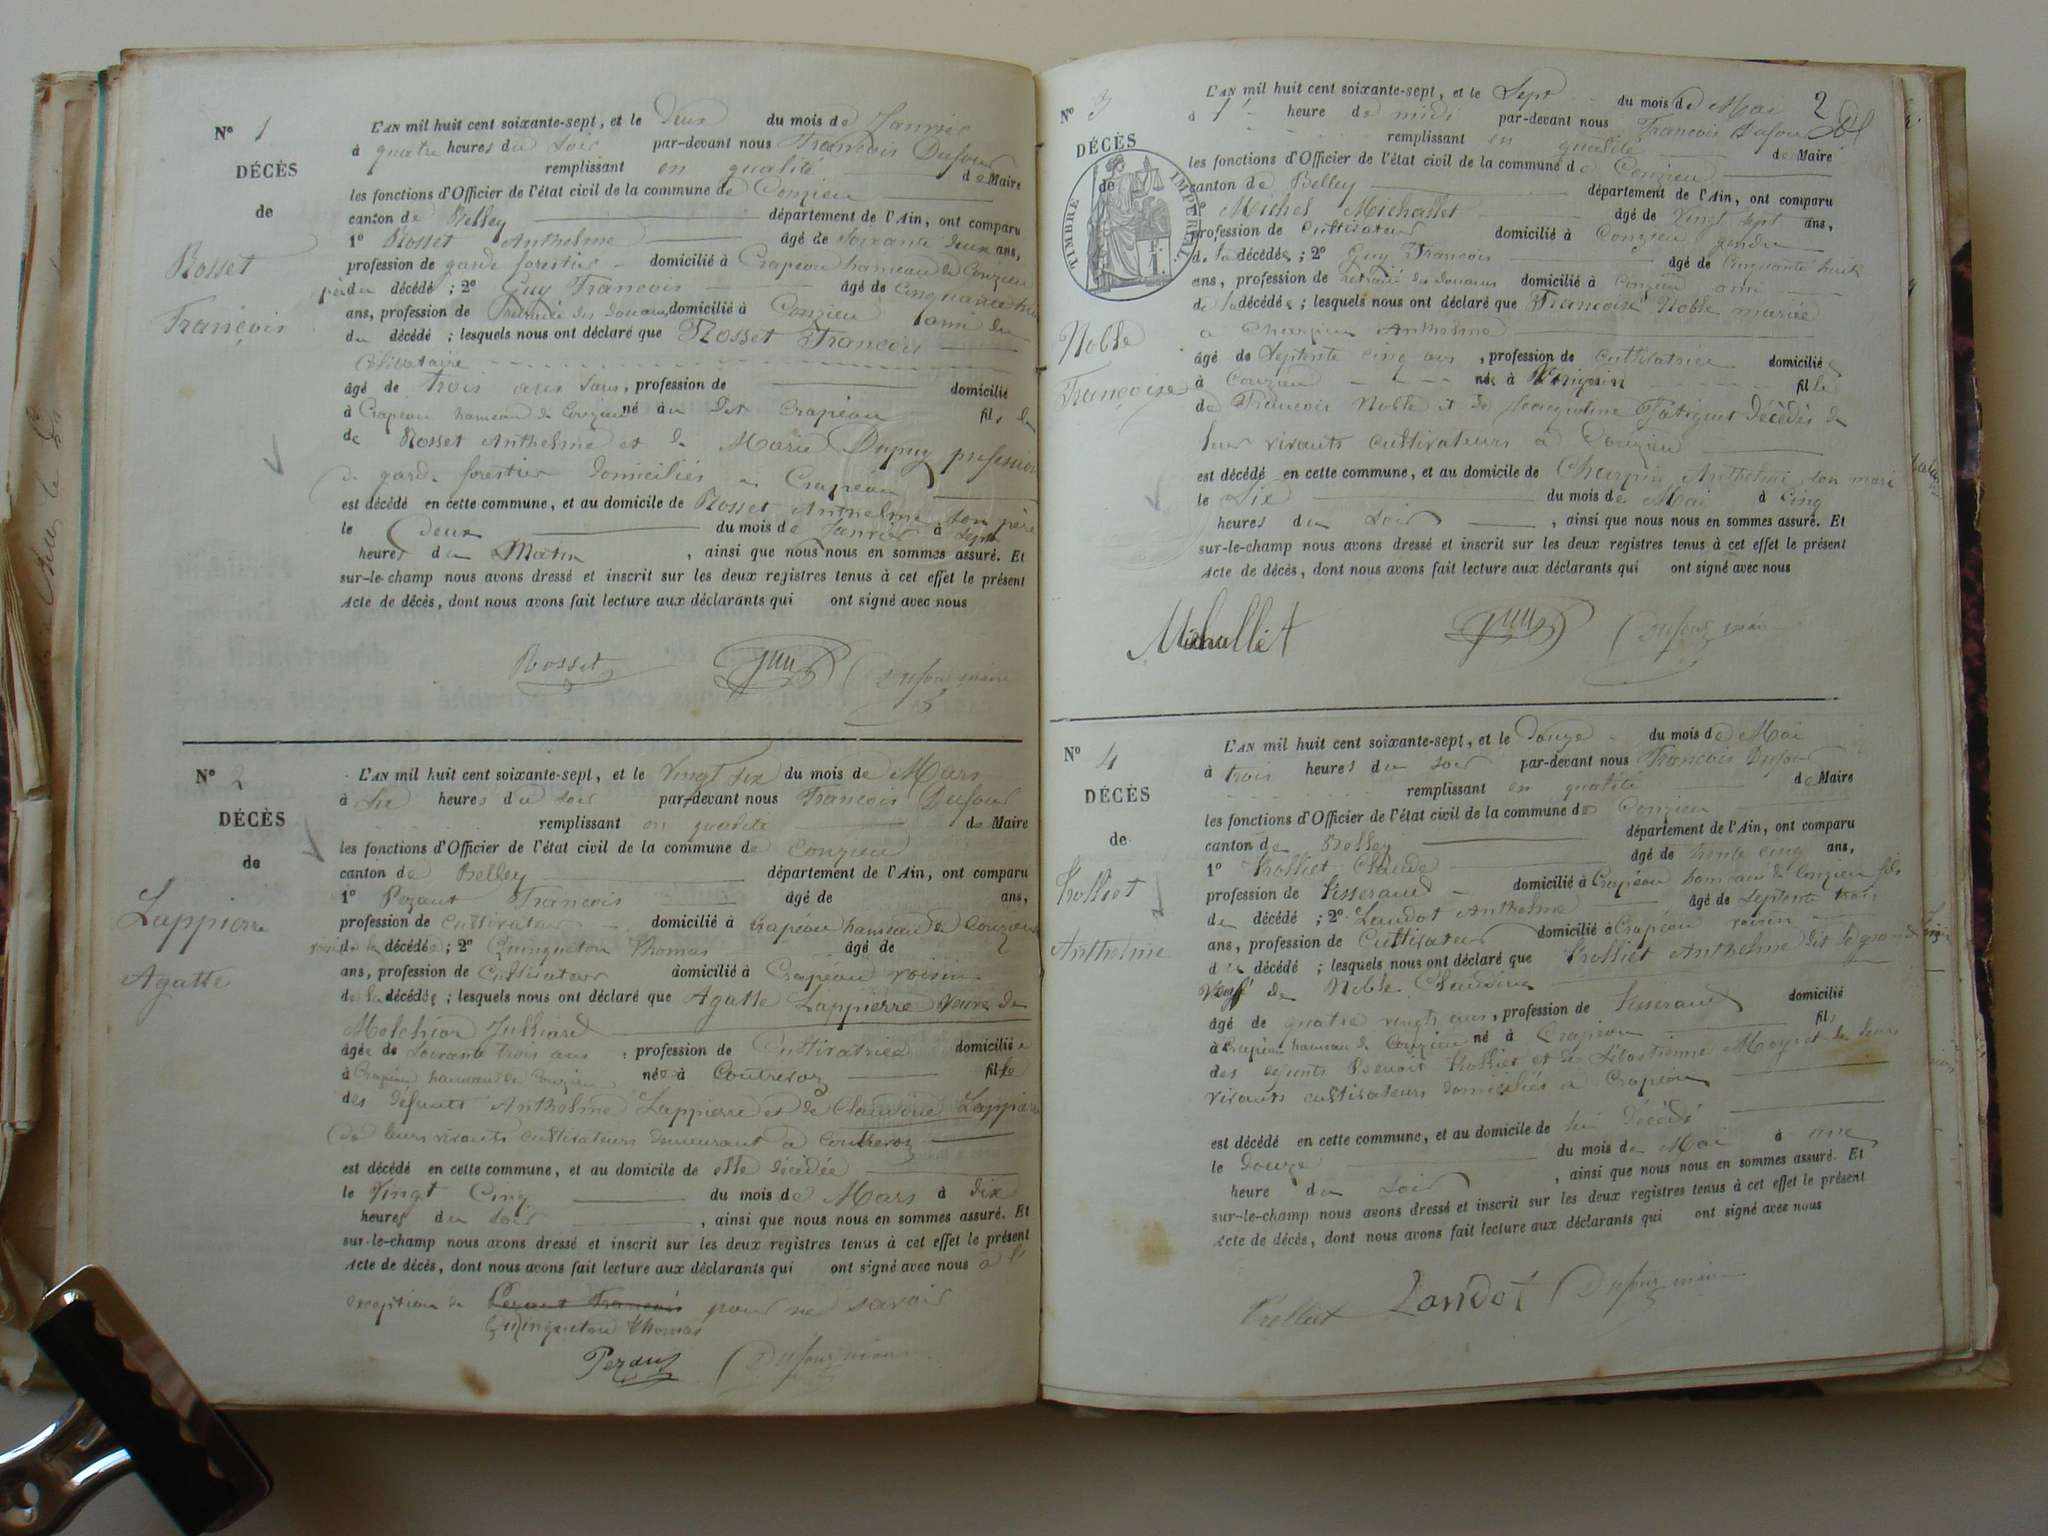 N° 1
DÉCÈS
de
Rosset
François
L'AN mil huit cent soixante-sept, et le Deux du mois de Janvier
à quatre heures du soir par-devant nous François Dufour
remplissant en qualité de Maire
les fonctions d'Officier de l'état civil de la commune de Conzieu
canton de Belley département de l'Ain, ont comparu
1° Rosset Anthelme âgé de soixante deux ans,
profession de garde forestier domicilié à Crapéou hameau de Conzieu
père du décédé ; 2° Guy François âgé de cinquante huit
ans, profession de Retraité des Douanes domicilié à Conzieu ami du
du décédé ; lesquels nous ont déclaré que Rosset François
Célibataire
âgé de trois ans, profession de domicilié
à Crapéou hameau de Conzieu né au dit Crapéou fils
de Rosset Anthelme et de Marie Dupuy profession
de garde forestier domiciliés à Crapéou
est décédé en cette commune, et au domicile de Rosset Anthelme son père
le Deux du mois de Janvier à sept
heures du Matin, ainsi que nous nous en sommes assuré. Et
sur-le-champ nous avons dressé et inscrit sur les deux registres tenus à cet effet le présent
Acte de décès, dont nous avons fait lecture aux déclarants qui ont signé avec nous
Rosset Guy Dufour maire
N° 2
DÉCÈS
de
Lappierre
Agatte
L'AN mil huit cent soixante-sept, et le Vingt six du mois de Mars
à six heures du soir par-devant nous François Dufour
remplissant en qualité de Maire
les fonctions d'Officier de l'état civil de la commune de Conzieu
canton de Belley département de l'Ain, ont comparu
1° Pezant François âgé de ans,
profession de cultivateur domicilié à Crapéou hameau de Conzieu
voisin de la décédée ; 2° Quinqueton Thomas âgé de
ans, profession de Cultivateur domicilié à Crapéou voisin
de la décédée ; lesquels nous ont déclaré que Agatte Lappierre veuve de
Melchior Julliard
âgée de soixante trois ans, profession de Cultivatrice domiciliée
à Crapéou hameau de Conzieu née à Contrevoz fille
des défunts Anthelme Lappierre et de Claudine Lappierre
de leurs vivants cultivateurs demeurant à Contrevoz
est décédé en cette commune, et au domicile de elle décédée
le Vingt Cinq du mois de Mars à dix
heures du soir, ainsi que nous nous en sommes assuré. Et
sur-le-champ nous avons dressé et inscrit sur les deux registres tenus à cet effet le présent
Acte de décès, dont nous avons fait lecture aux déclarants qui ont signé avec nous à l'
exception de Pezant François pour ne savoir
Quinqueton Thomas
Pezant Dufour maire
2
N° 3
DÉCÈS
de
TIMBRE IMPÉRIAL
Noble
Françoise
L'AN mil huit cent soixante-sept, et le Sept du mois de Mai
à 1 heure de midi par-devant nous François Dufour
remplissant en qualité de Maire
les fonctions d'Officier de l'état civil de la commune de Conzieu
canton de Belley département de l'Ain, ont comparu
1° Michel Michallet âgé de vingt sept ans,
profession de Cultivateur domicilié à Conzieu gendre
de la décédée ; 2° Guy François âgé de cinquante huit
ans, profession de retraité des douanes domicilié à Conzieu ami
de la décédée ; lesquels nous ont déclaré que Françoise Noble mariée
à Charpin Anthelme
âgé de septente cinq ans, profession de cultivatrice domiciliée
à Conzieu née à fille
de François Noble et de Jacqueline décédés de
leur vivants cultivateurs à Conzieu
est décédé en cette commune, et au domicile de Charpin Anthelme son mari
le Six du mois de Mai à cinq
heures du soir, ainsi que nous nous en sommes assuré. Et
sur-le-champ nous avons dressé et inscrit sur les deux registres tenus à cet effet le présent
Acte de décès, dont nous avons fait lecture aux déclarants qui ont signé avec nous
Michallet Guy Dufour maire
N° 4
DÉCÈS
de
Trolliet
Anthelme
L'AN mil huit cent soixante-sept, et le douze du mois de Mai
à trois heures du soir par-devant nous François Dufour
remplissant en qualité de Maire
les fonctions d'Officier de l'état civil de la commune de Conzieu
canton de Belley département de l'Ain, ont comparu
1° Trolliet Claude âgé de trente cinq ans,
profession de Tisserand domicilié à Crapéou hameau de Conzieu fils
du décédé ; 2° Landot Anthelme âgé de septente trois
ans, profession de Cultivateur domicilié à Crapéou voisin
du décédé ; lesquels nous ont déclaré que Trolliet Anthelme dit le grand
veuf de Noble Claudine
âgé de quatre vingts ans, profession de Tisserand domicilié
à Crapéou hameau de Conzieu né à Crapéou fils
des défunts Benoit Trolliet et de Sébastienne de leurs
vivants cultivateurs domiciliés à Crapéou
est décédé en cette commune, et au domicile de lui décédé
le douze du mois de Mai à une
heure du soir, ainsi que nous nous en sommes assuré. Et
sur-le-champ nous avons dressé et inscrit sur les deux registres tenus à cet effet le présent
Acte de décès, dont nous avons fait lecture aux déclarants qui ont signé avec nous
Trolliet Landot Dufour maire